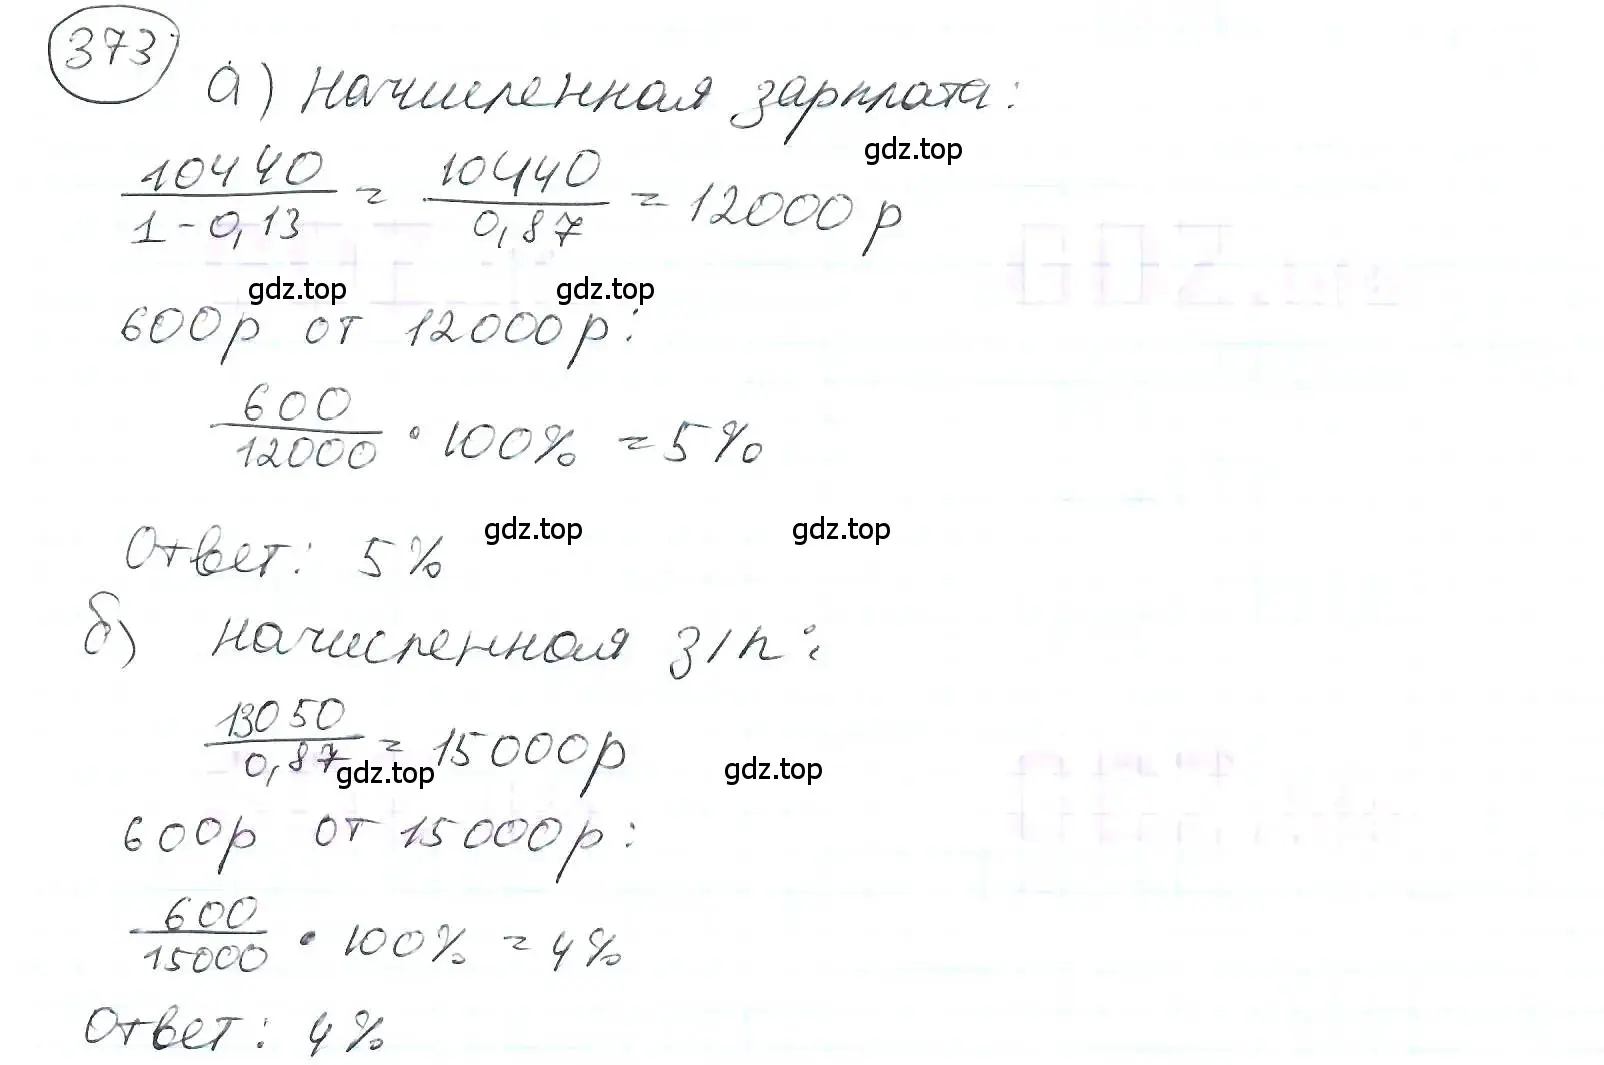 373
а) начисленная зарплата:
gdz.top
10440/(1-0,13) = 10440/0,87 = 12000 р
gdz.top gdz.top
600р от 12000р:
600/12000 · 100% = 5%
Ответ: 5% gdz.top gdz.top
б) начисленная з/п:
13050/0,87 = 15000р
gdz.top gdz.top
600р от 15000р:
600/15000 · 100% = 4%
Ответ: 4%